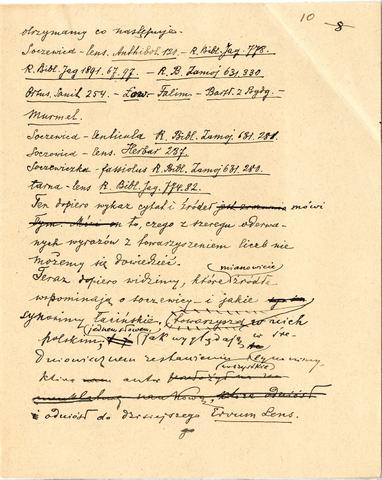 10 8
otrzymamy co następuje.
Soczewica - lens. Anthibol. 120. - R. Bibl. Jag. 778.
R. Bibl. Jag 1891. 67. 97. - R. B. Zamoj 631, 330
Ortus. Sanit 254. - Low. Falim. - Bartł. z Bydg. -
Murmel.
Soczewica - lenticula R. Bibl. Zamoj. 681. 281.
Soczewica - lens. Herbar 287.
Soczewiczka - fassiolus R. Bibl. Zamoj 681. 280.
tarna - lens R. Bibl. Jag. 774. 82.
Ten dopiero wykaz cytat i źródeł mówi
to, czego z szeregu oderwa-
nych wyrazów z towarzyszeniem liczb nie
możemy się dowiedzieć.
Teraz dopiero widzimy, które mianowicie źródła
wspominają o soczewicy - i jakie
synonimy łacińskie towarzyszą w nich
polskim, jednem słowem, jak wyglądają w śre-
dniowiecznem zestawieniu synonimy,
które autor wszystkie
i odniósł do dzisiejszego Ervum Lens.